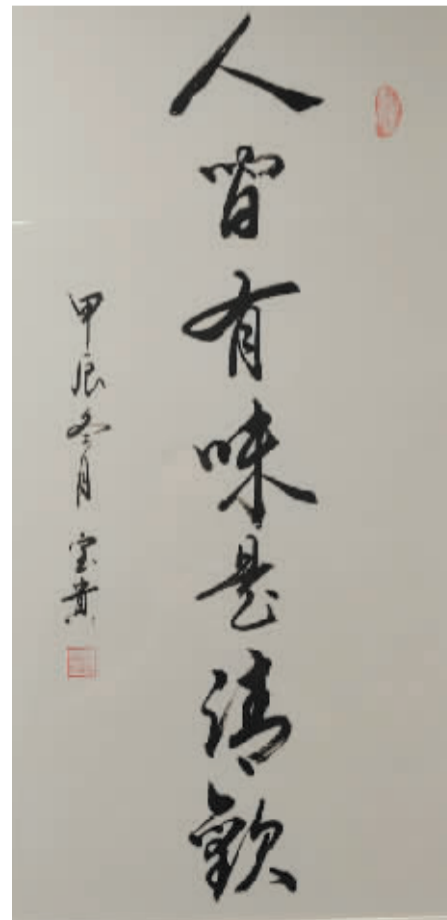 人間有味是清歡
甲辰冬月 宝贵